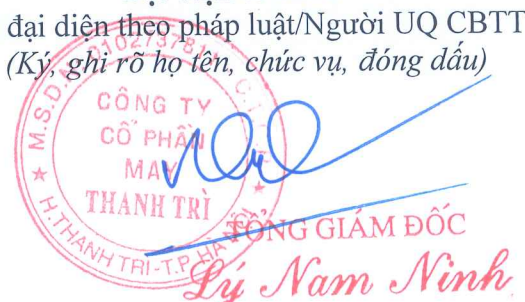 đại diện theo pháp luật/Người UQ CBTT
(Ký, ghi rõ họ tên, chức vụ, đóng dấu)
CÔNG TY
CỔ PHẦN
MAY
THANH TRÌ
H.THANH TRÌ-T.P HÀ NỘI
TỔNG GIÁM ĐỐC
Lý Nam Ninh